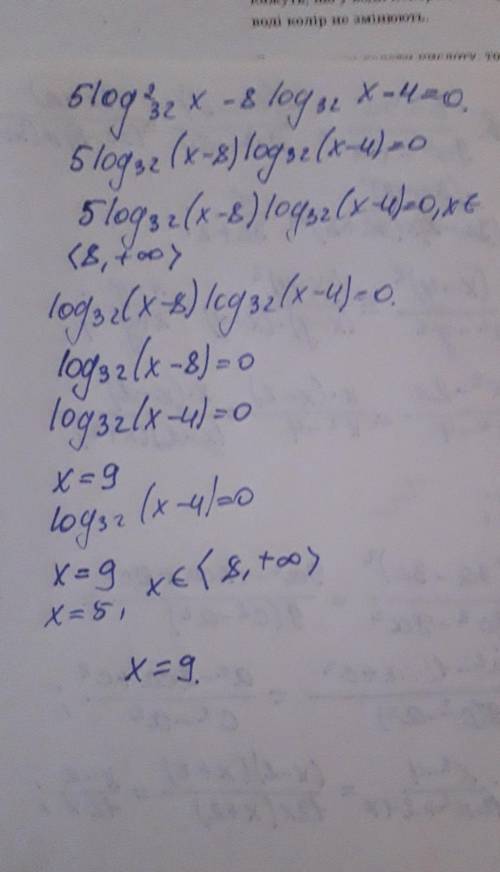 воді колір не змінюють.
5log²₃₂ x - 8 log₃₂ x - 4 = 0.
5log₃₂(x-8)log₃₂(x-4)=0
5log₃₂(x-8)log₃₂(x-4)=0, x∈
⟨8, +∞⟩
log₃₂(x-8)log₃₂(x-4)=0.
log₃₂(x-8)=0
log₃₂(x-4)=0
x=9
log₃₂(x-4)=0
x=9 x∈⟨8, +∞⟩
x=5,
x=9.